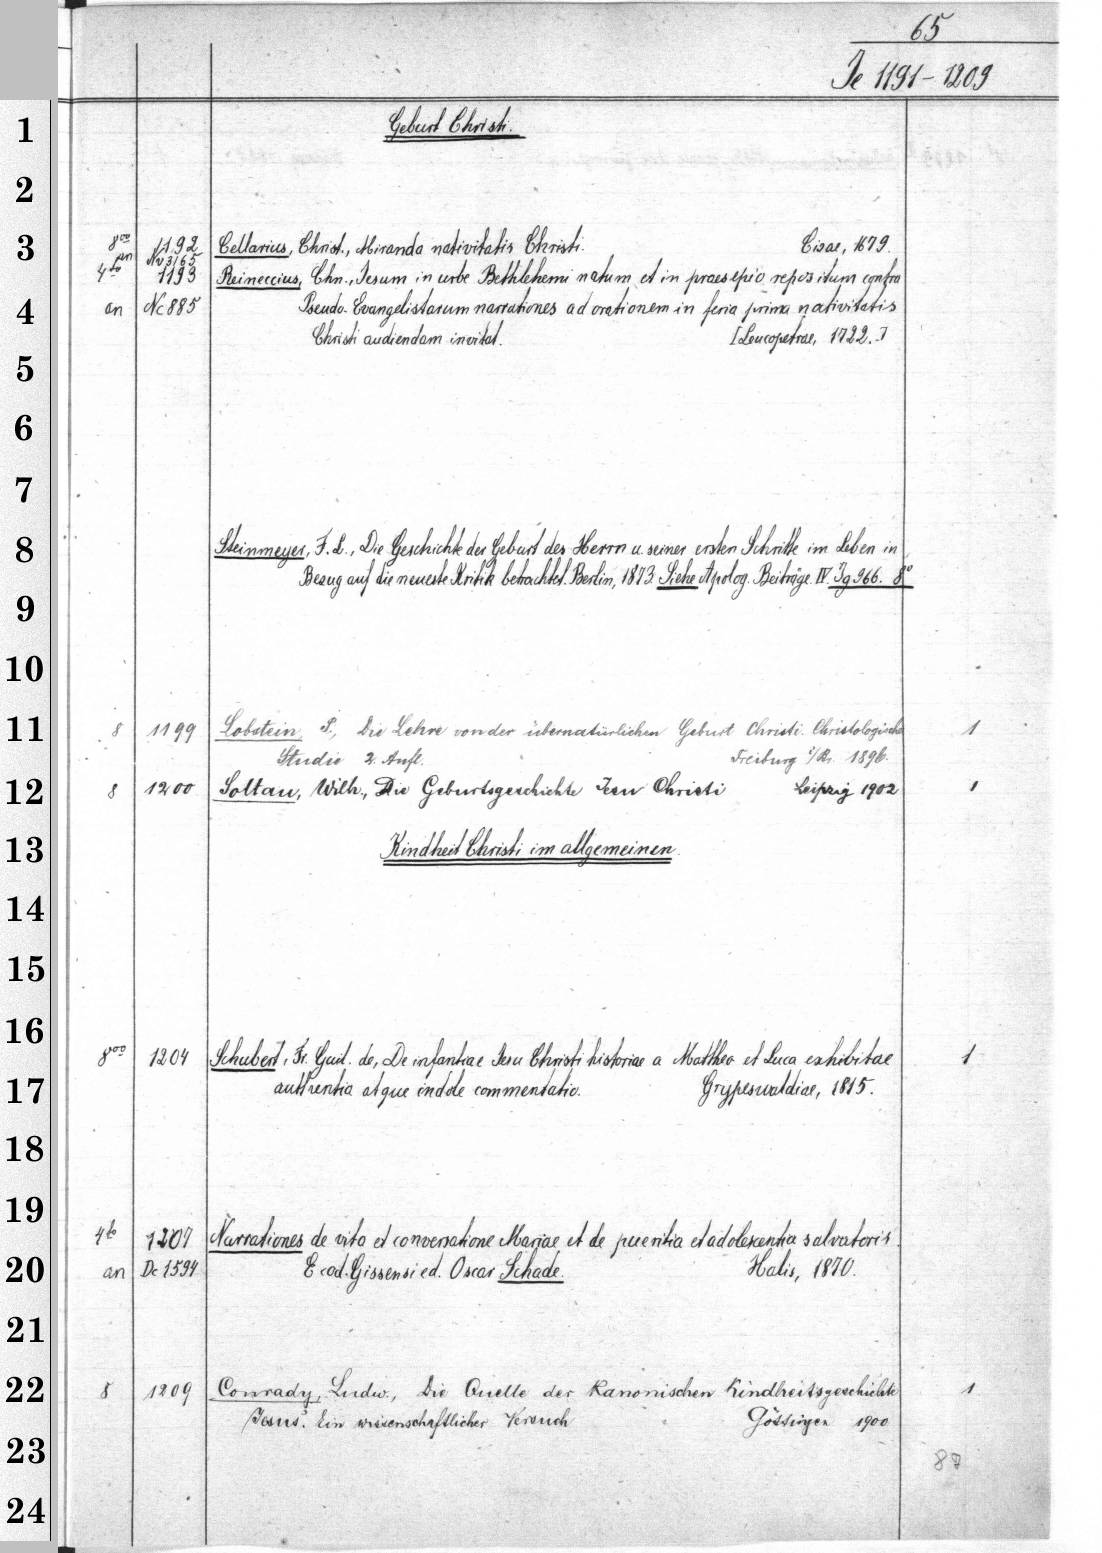 65
Ie 1191-1209
1
Geburt Christi.
2
3
8vo 1192 Cellarius, Christ., Miranda nativitatis Christi. Cizae, 1679.
an Nv 3165
4to 1193 Reineccius, Chn., Jesum in urbe Bethlehemi natum et in praesepio repositum contra
4
an Nc 885 Pseudo-Evangelistarum narrationes ad orationem in feria prima nativitatis
Christi audiendam invitat. [Leucopetrae, 1722.]
5
6
7
8
Steinmeyer, F. L., Die Geschichte der Geburt des Herrn u. seiner ersten Schritte im Leben in
Bezug auf die neueste Kritik betrachtet. Berlin, 1873 Siehe Apolog. Beiträge IV. Ig 966. 8o
9
10
11
8 1199 Lobstein, P., Die Lehre von der übernatürlichen Geburt Christi. Christologische 1
Studie 2. Aufl. Freiburg i/Br. 1896.
12
8 1200 Soltau, Wilh., Die Geburtsgeschichte Jesu Christi Leipzig 1902 1
13
Kindheit Christi im allgemeinen.
14
15
16
8vo 1204 Schubert, Fr. Guil. de, De infantiae Jesu Christi historiae a Mattheo et Luca exhibitae 1
17
authentia atque indole commentatio. Grypeswaldiae, 1815.
18
19
4to 1207 Narrationes de vita et conversatione Mariae et de pueritia et adolescentia salvatoris.
20
an Dc 1594 E cod. Gissensi ed. Oscar Schade. Halis, 1870.
21
22
8 1209 Conrady, Ludw., Die Quelle der kanonischen Kindheitsgeschichte 1
Jesus'. Ein wissenschaftlicher Versuch Göttingen 1900
23
87
24